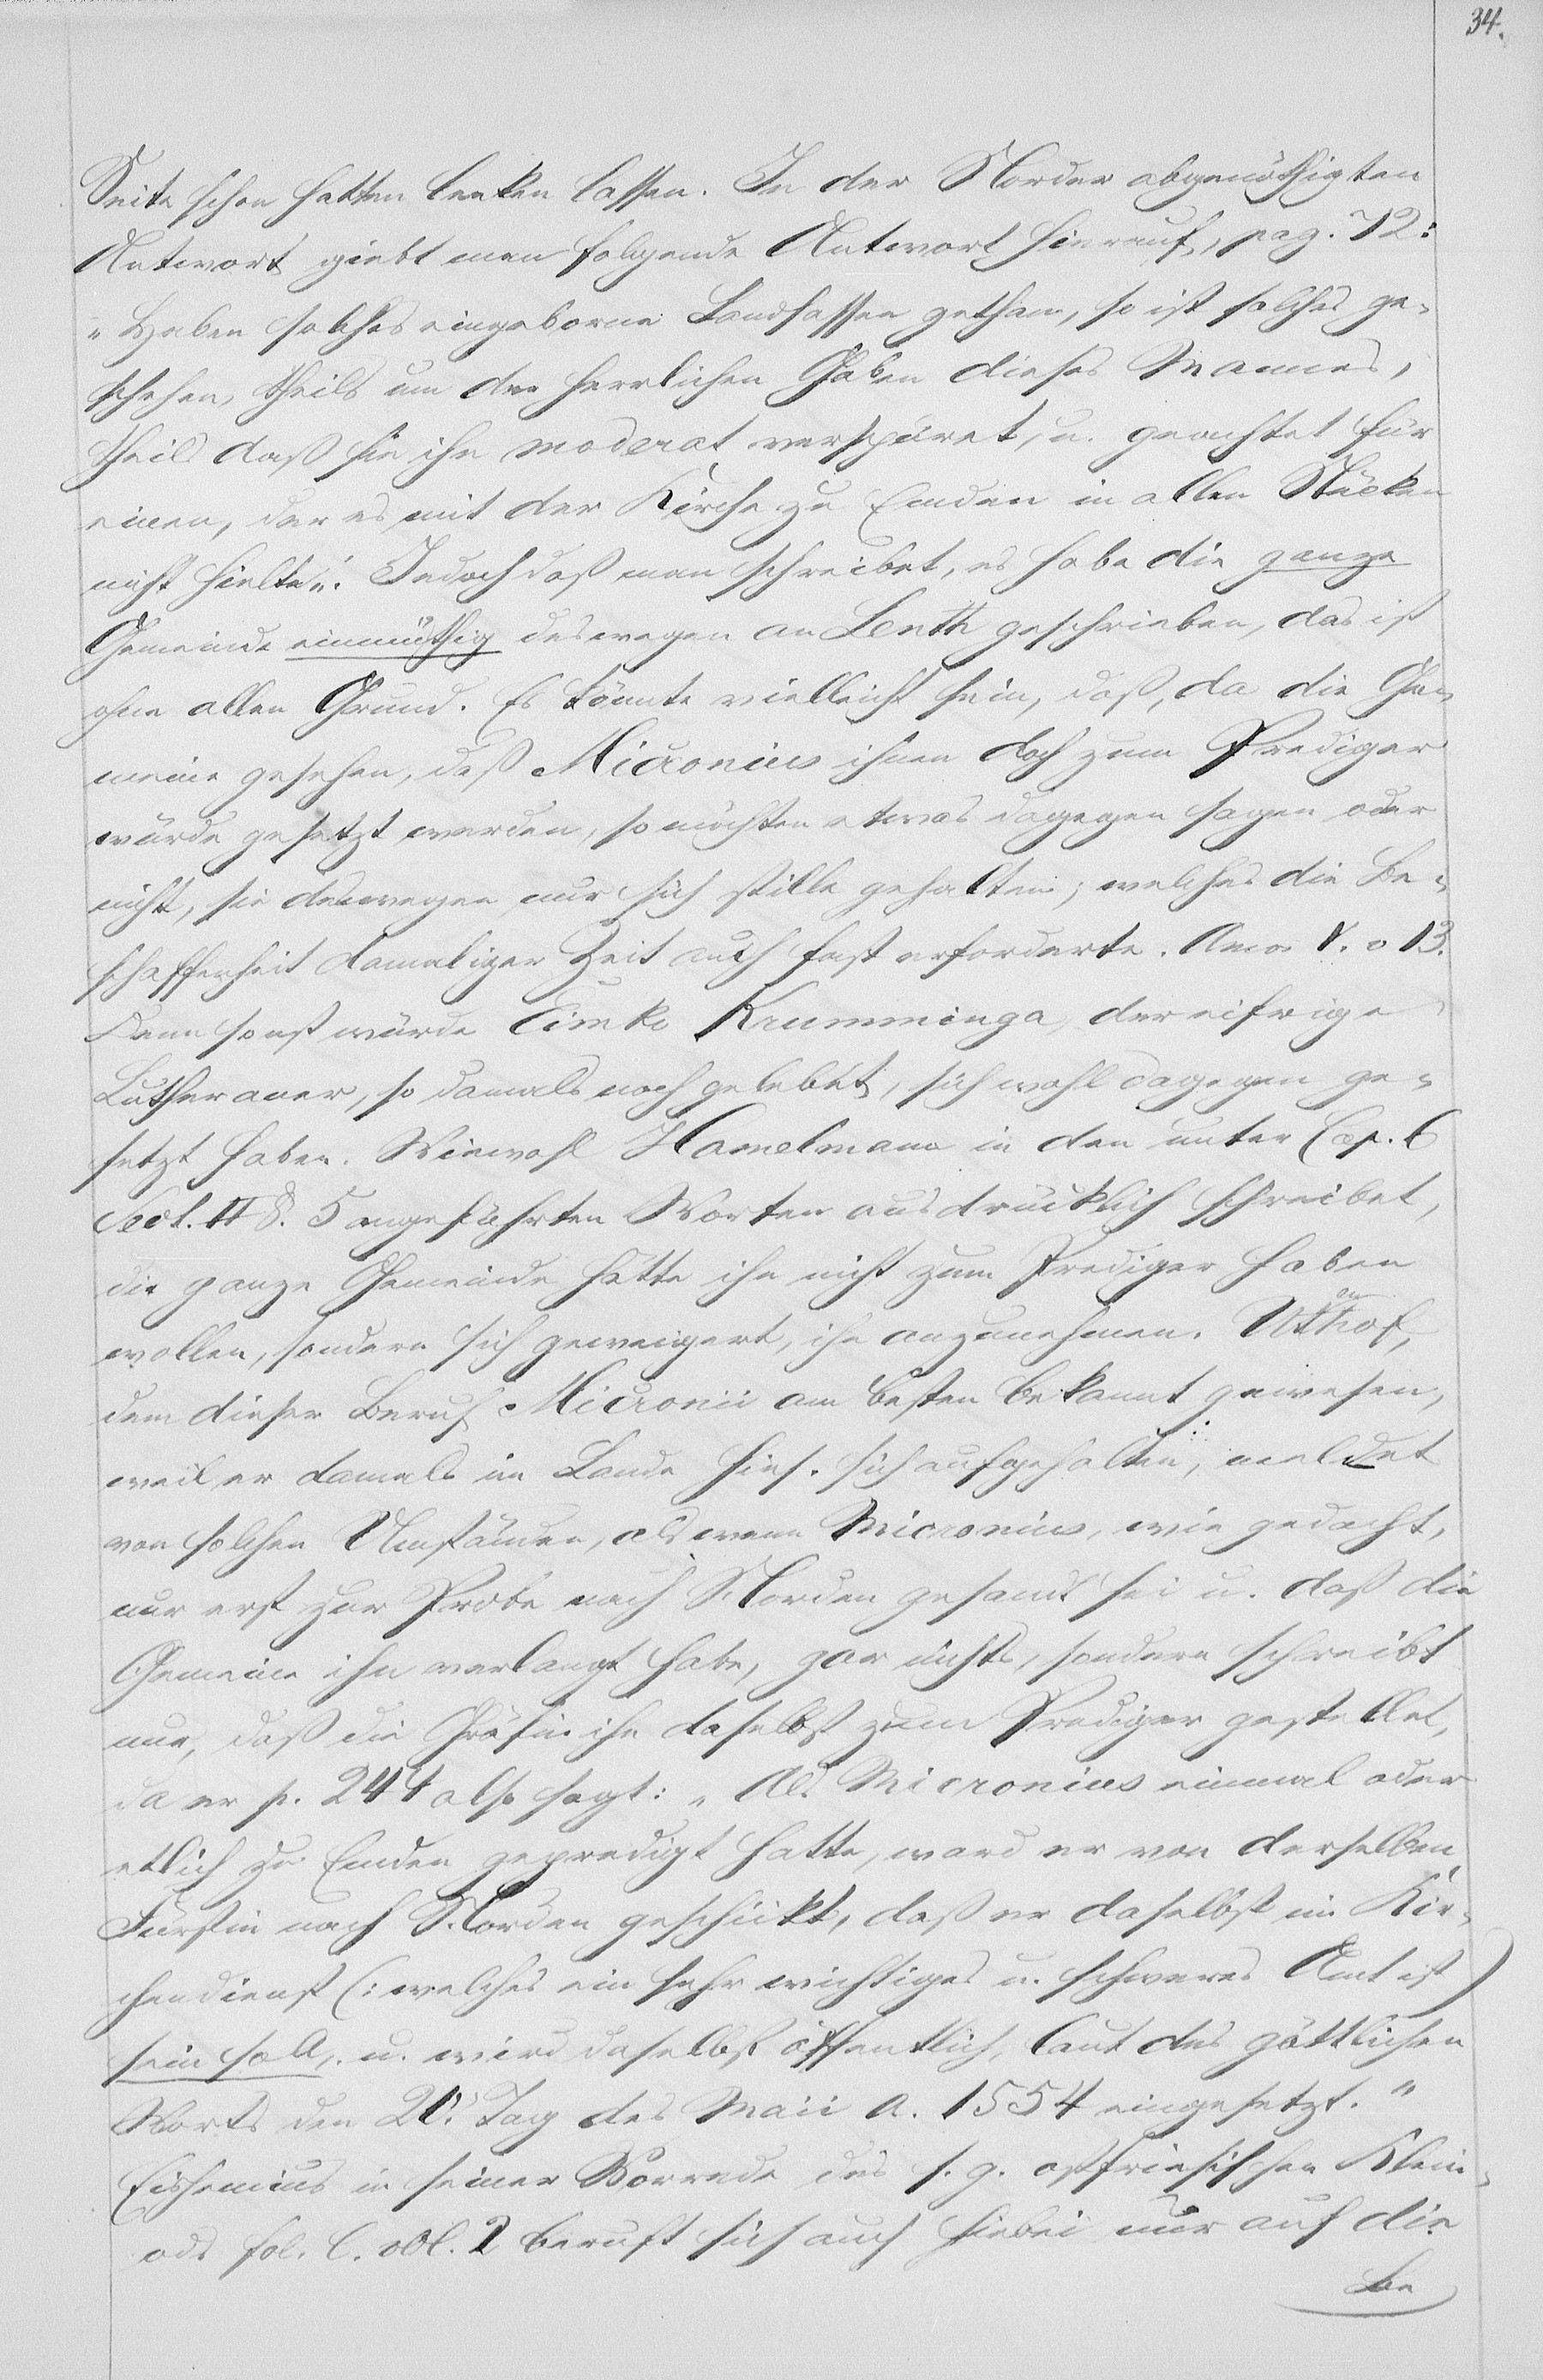 34.
Seite schon hatten lenken lassen. In der Norder abgenöthigten
Antwort giebt man folgende Antwort hierauf, pag. 72:
„Haben solches eingeborne Landsassen gethan, so ist solches ge-
schehen, theils um der herrlichen Gaben dieses Mannes,
theils daß sie ihn moderat verspüret, u. geachtet für
einen, der es mit der Kirche zu Emden in allen Stücken
nicht hielte“. Jedoch daß man schreibet, es habe die ganze
Gemeinde einmüthig deswegen an Lenth geschrieben, das ist
ohne allen Grund. Es könnte vielleicht sein, daß, da die Ge-
meine gesehen, daß Micronius ihnen doch zum Prediger
würde gesetzt werden, so möchten etwas dagegen sagen oder
nicht, sie deswegen nur sich stille gehalten; welches die Be-
schaffenheit damaliger Zeit auch fast erforderte. Amos V. v 13.
Denn sonst würde Eimke Krumminga, der eifrige
Lutheraner, so damals noch gelebet, sich wohl dagegen ge-
setzt haben. Wiewohl Hamelmann in den unter Cap. 6
Sect. II §. 5 angeführten Worten ausdrücklich schreibet,
die ganze Gemeinde hätte ihn nicht zum Prediger haben
wollen, sondern sich geweigert, ihn anzunehmen. Utenhof,
dem dieser Beruf Micronii am besten bekannt gewesen,
weil er damals im Lande hies. sich aufgehalten, meldet
von solchen Umständen, als wenn Micronius, wie gedacht,
nur erst zur Probe nach Norden gesandt sei u. daß die
Gemeine ihn verlangt habe, gar nichts, sondern schreibt
nur, daß die Gräfin ihn daselbst zum Prediger gestellet,
da er p. 244 also sagt: „Als Micronius einmal oder
etlich zu Emden gepredigt hatte, ward er von derselben
Fürstin nach Norden geschickt, daß er daselbst im Kir-
chendienst (: welches ein sehr wichtiges u. schweres Amt ist)
sein soll, u. wird daselbst öffentlich, laut des göttlichen
Worts den 20. Tag des Maii A. 1554 eingesetzt.“
Eishemius in seiner Vorrede des s. g. ostfriesischen Klein-
ods fol. C. obl. 2 beruft sich auch hiebei nur auf die
Be